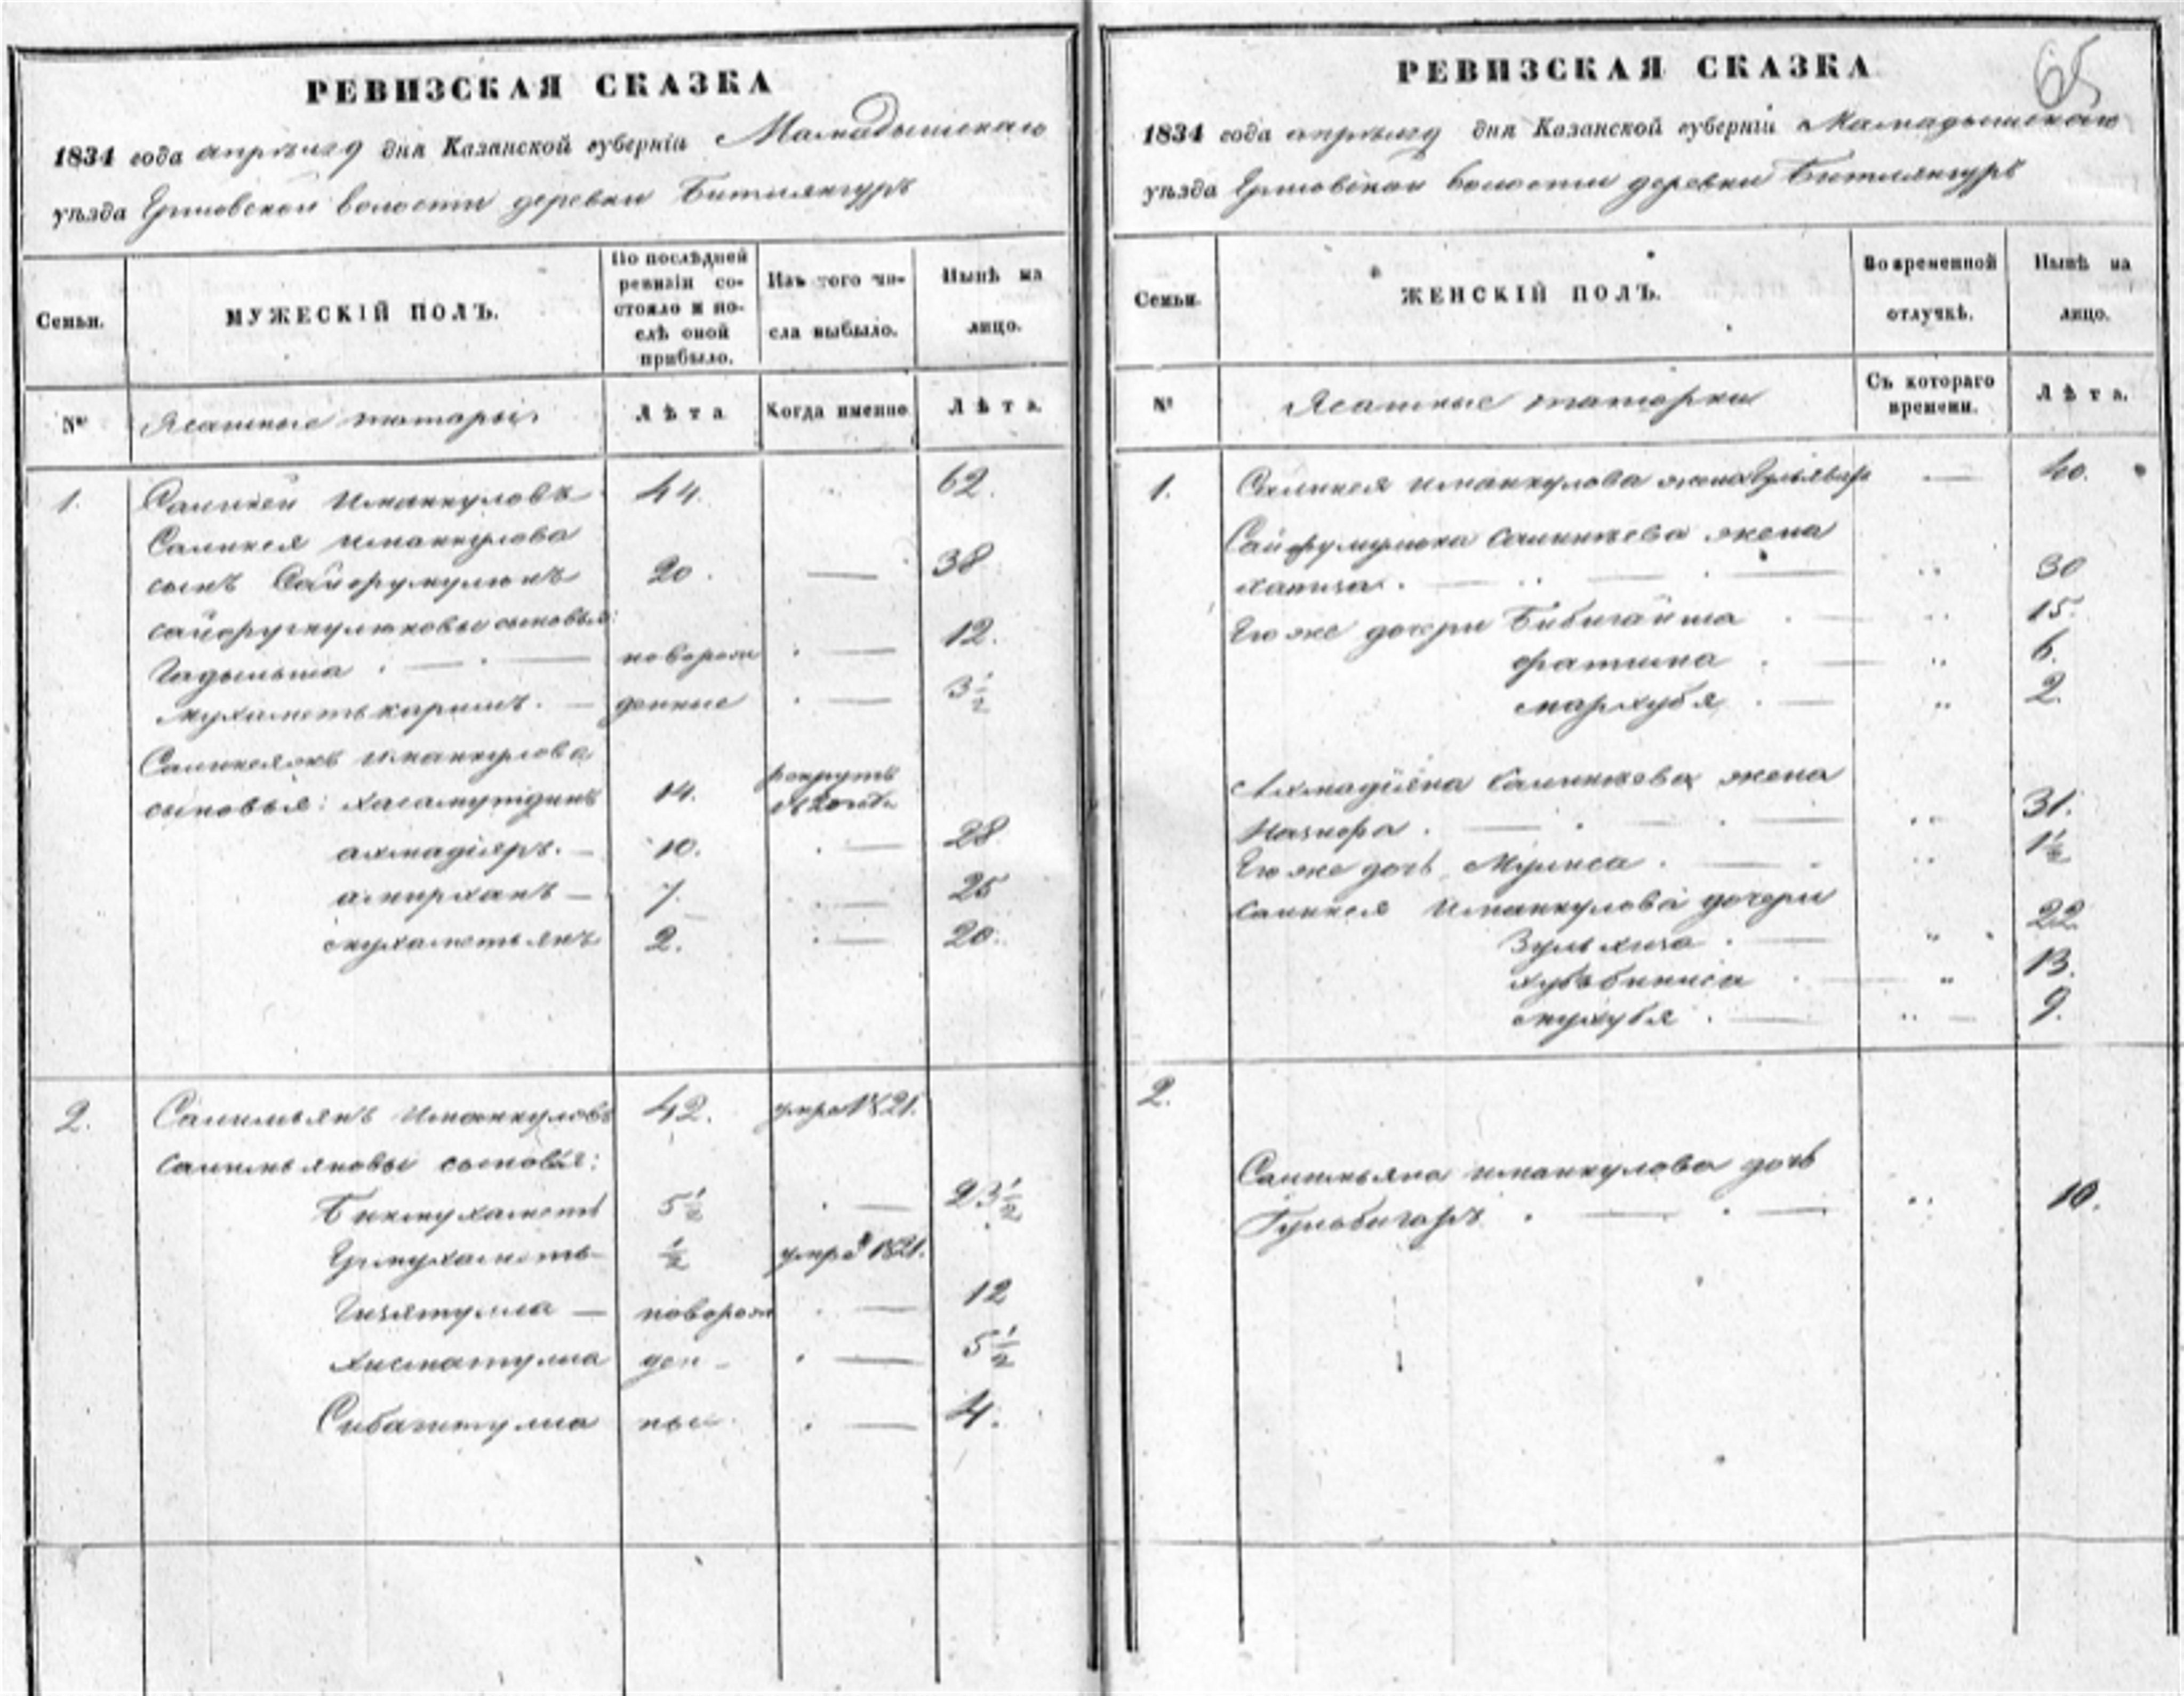 РЕВИЗСКАЯ СКАЗКА
1834 года апреля 9 дня Казанской губерніи Мамадышскаго
уѣзда волости деревни Битлянгуръ
Семьи.
МУЖЕСКІЙ ПОЛЪ.
По послѣдней ревизіи состояло и послѣ оной прибыло.
Изъ того числа выбыло.
Нынѣ на лицо.
№
Ясашные татары
Лѣта
Когда именно
Лѣта.
1. Саликей Иманкуловъ 44. 62.
Саликея Иманкулова
сынъ Сайфумулюкъ 20. — 38
сайфумулюковы сыновья:
Гадыльша . — новорож . — 12.
мухаметькаримъ. — денные . — 3½
Саликеяжъ Иманкулова
сыновья: хасамутдинъ 14. рекрутъ
ахмадіяръ. — 10. . — 28
амирханъ — 7. . — 25
мухаметьянъ 2. . — 20.
2. Салимьянъ Иманкуловъ 42. умре 1821.
салимьяновы сыновья:
Бикмухаметь 5½ . — 23½
Ермухаметь ½ умре 1821.
Гизятулла — новорож . — 12
хисматулла ден- . — 5½
Сибагатулла ные . — 4.
РЕВИЗСКАЯ СКАЗКА 65
1834 года апреля 9 дня Казанской губерніи Мамадышскаго
уѣзда волости деревни Битлянгуръ
Семьи.
ЖЕНСКІЙ ПОЛЪ.
Во временной отлучкѣ.
Нынѣ на лицо.
№
Ясашные татарки
Съ котораго времени.
Лѣта.
1. Саликея Иманкулова жена — 40.
Сайфумулюка Саликеева жена
хатиза . — 30
Его же дочери Бибигайша 15.
фатима . — 6.
мархубя . — 2.
Ахмадіяра Саликеева жена
. — 31.
Его же дочь . — 1½
саликея Иманкулова дочери
Зульхиза . — 22.
13.
махубя . — 9.
2.
Салимьяна Иманкулова дочь
Гульбигаръ . — 10.